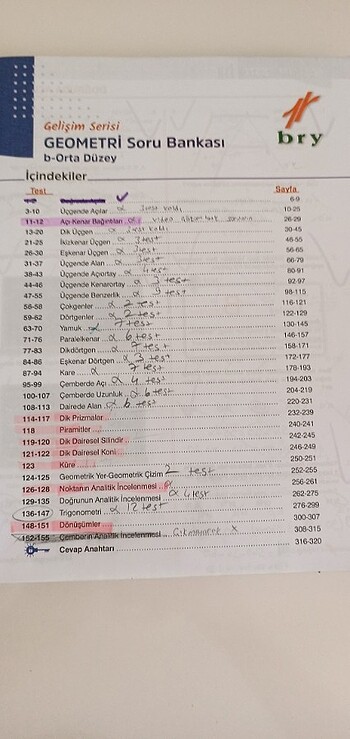 Gelişim Serisi
GEOMETRİ Soru Bankası
b-Orta Düzey
bry
İçindekiler
Test Sayfa
1-2 Doğruda Açılar ✓ 6-9
3-10 Üçgende Açılar α 3 test kaldı 10-25
11-12 Açı-Kenar Bağıntıları α video 26-29
13-20 Dik Üçgen α 2 test kaldı 30-45
21-25 İkizkenar Üçgen α 3 test 46-55
26-30 Eşkenar Üçgen α test 56-65
31-37 Üçgende Alan α test 66-79
38-43 Üçgende Açıortay α 4 test 80-91
44-46 Üçgende Kenarortay α 3 test 92-97
47-55 Üçgende Benzerlik α 9 test 98-115
56-58 Çokgenler α 2 test 116-121
59-62 Dörtgenler α 2 test 122-129
63-70 Yamuk α 7 test 130-145
71-76 Paralelkenar α 6 test 146-157
77-83 Dikdörtgen α 7 test 158-171
84-86 Eşkenar Dörtgen α 3 test 172-177
87-94 Kare α 7 test 178-193
95-99 Çemberde Açı α 4 test 194-203
100-107 Çemberde Uzunluk α 6 test 204-219
108-113 Dairede Alan α 6 test 220-231
114-117 Dik Prizmalar 232-239
118 Piramitler 240-241
119-120 Dik Dairesel Silindir 242-245
121-122 Dik Dairesel Koni 246-249
123 Küre 250-251
124-125 Geometrik Yer-Geometrik Çizim 2 test 252-255
126-128 Noktanın Analitik İncelenmesi α 256-261
129-135 Doğrunun Analitik İncelenmesi α 4 test 262-275
136-147 Trigonometri α 12 test 276-299
148-151 Dönüşümler 300-307
152-155 Çemberin Analitik İncelenmesi x 308-315
Cevap Anahtarı 316-320